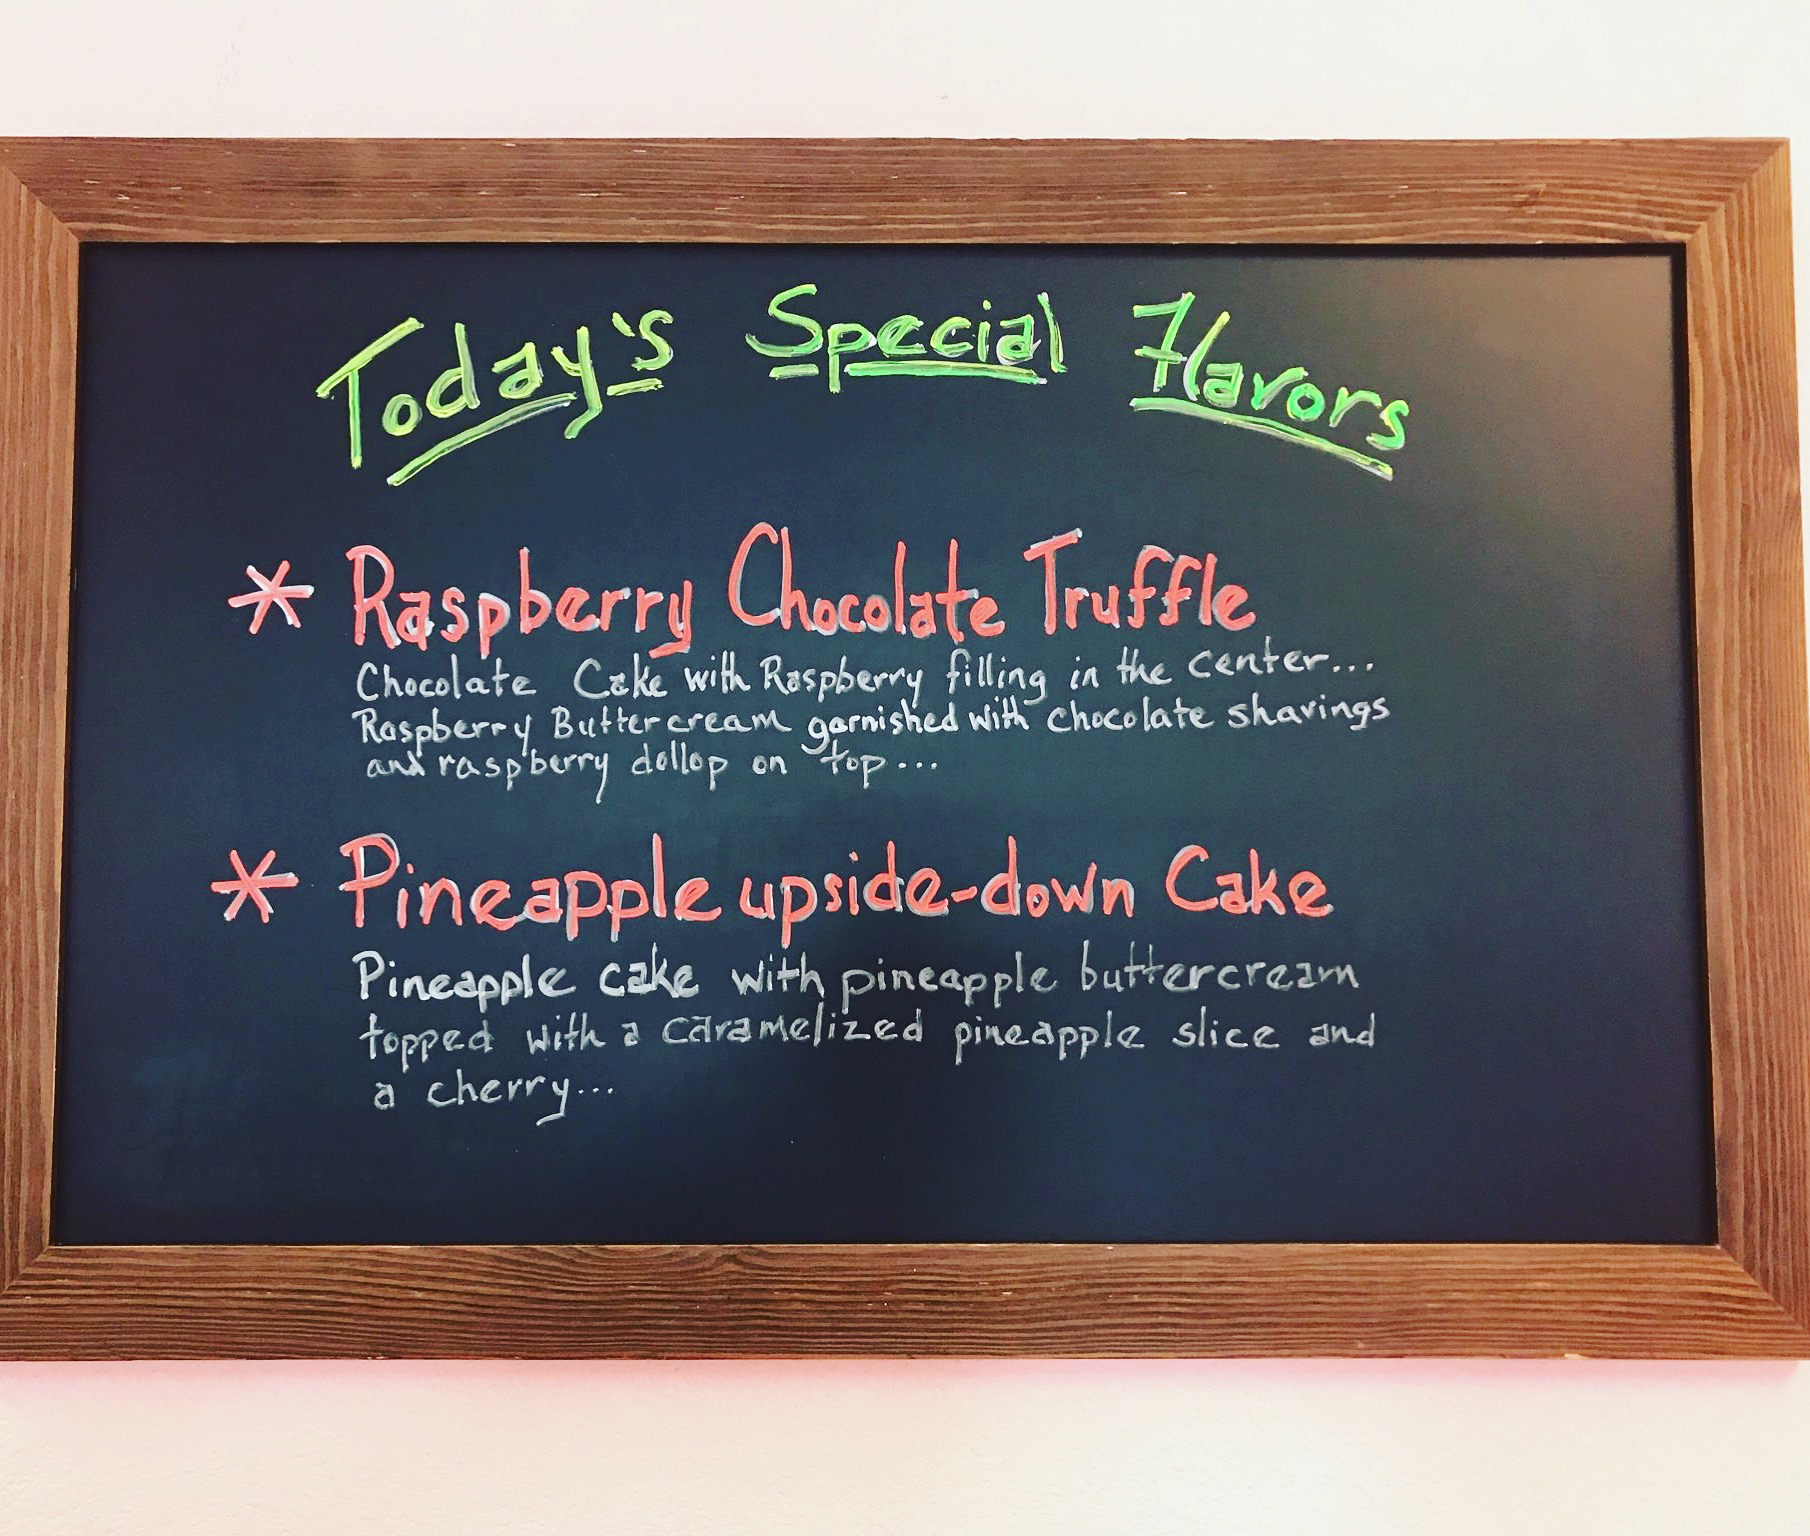 Today's Special Flavors
* Raspberry Chocolate Truffle
Chocolate Cake with Raspberry filling in the center...
Raspberry Buttercream garnished with chocolate shavings
and raspberry dollop on top...
* Pineapple upside-down Cake
Pineapple cake with pineapple buttercream
topped with a caramelized pineapple slice and
a cherry...